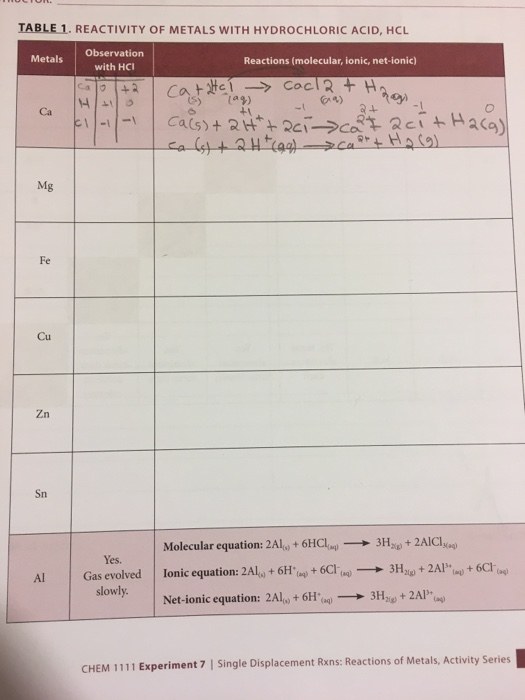 TABLE 1. REACTIVITY OF METALS WITH HYDROCHLORIC ACID, HCL
Metals
Observation
with HCl
Reactions (molecular, ionic, net-ionic)
Ca
Ca 0 +2
H +1 0
Cl -1 -1
Ca + 2Hcl → cacl2 + H2(g)
(s) (aq) (aq)
0 +1 -1 2+ -1 0
Ca(s) + 2H+ + 2cl- → ca2+ + 2cl- + H2(g)
Ca (s) + 2H+(aq) → Ca2+ + H2(g)
Mg
Fe
Cu
Zn
Sn
Al
Yes.
Gas evolved
slowly.
Molecular equation: 2Al(s) + 6HCl(aq) → 3H2(g) + 2AlCl3(aq)
Ionic equation: 2Al(s) + 6H+(aq) + 6Cl-(aq) → 3H2(g) + 2Al3+(aq) + 6Cl-(aq)
Net-ionic equation: 2Al(s) + 6H+(aq) → 3H2(g) + 2Al3+(aq)
CHEM 1111 Experiment 7 | Single Displacement Rxns: Reactions of Metals, Activity Series